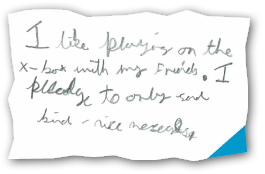 I like playing on the
x-box with my Friends. I
pleadge to only send
kind - nice